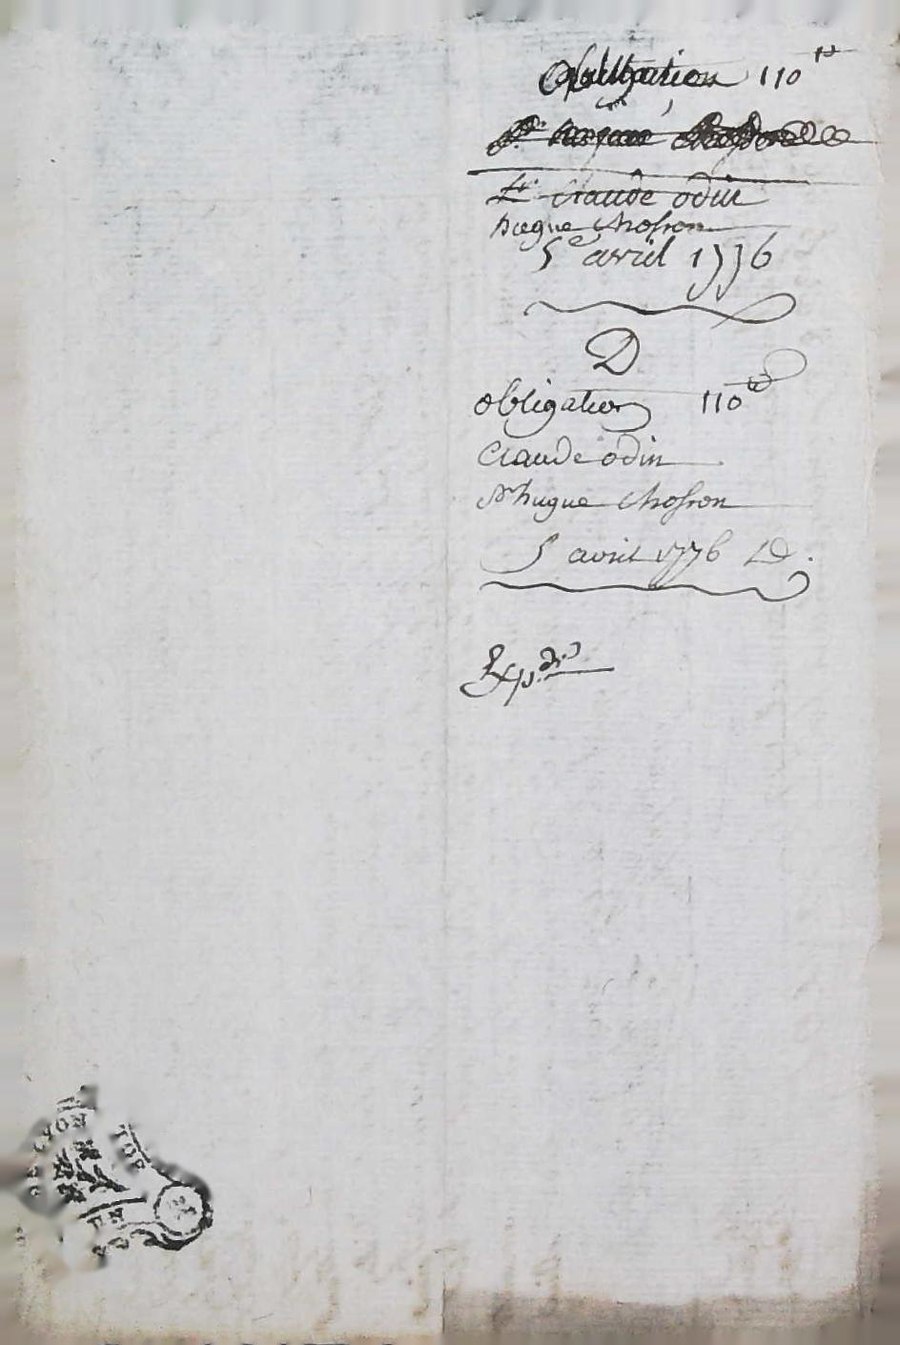 obligation 110ᵗᵗ
Sr Claude odin
hugue Chosson
5e avril 1776
D
obligation 110ᵗᵗ
Claude odin
Sr hugue Chosson
5 avril 1776 LD.
Exp.die
LYON